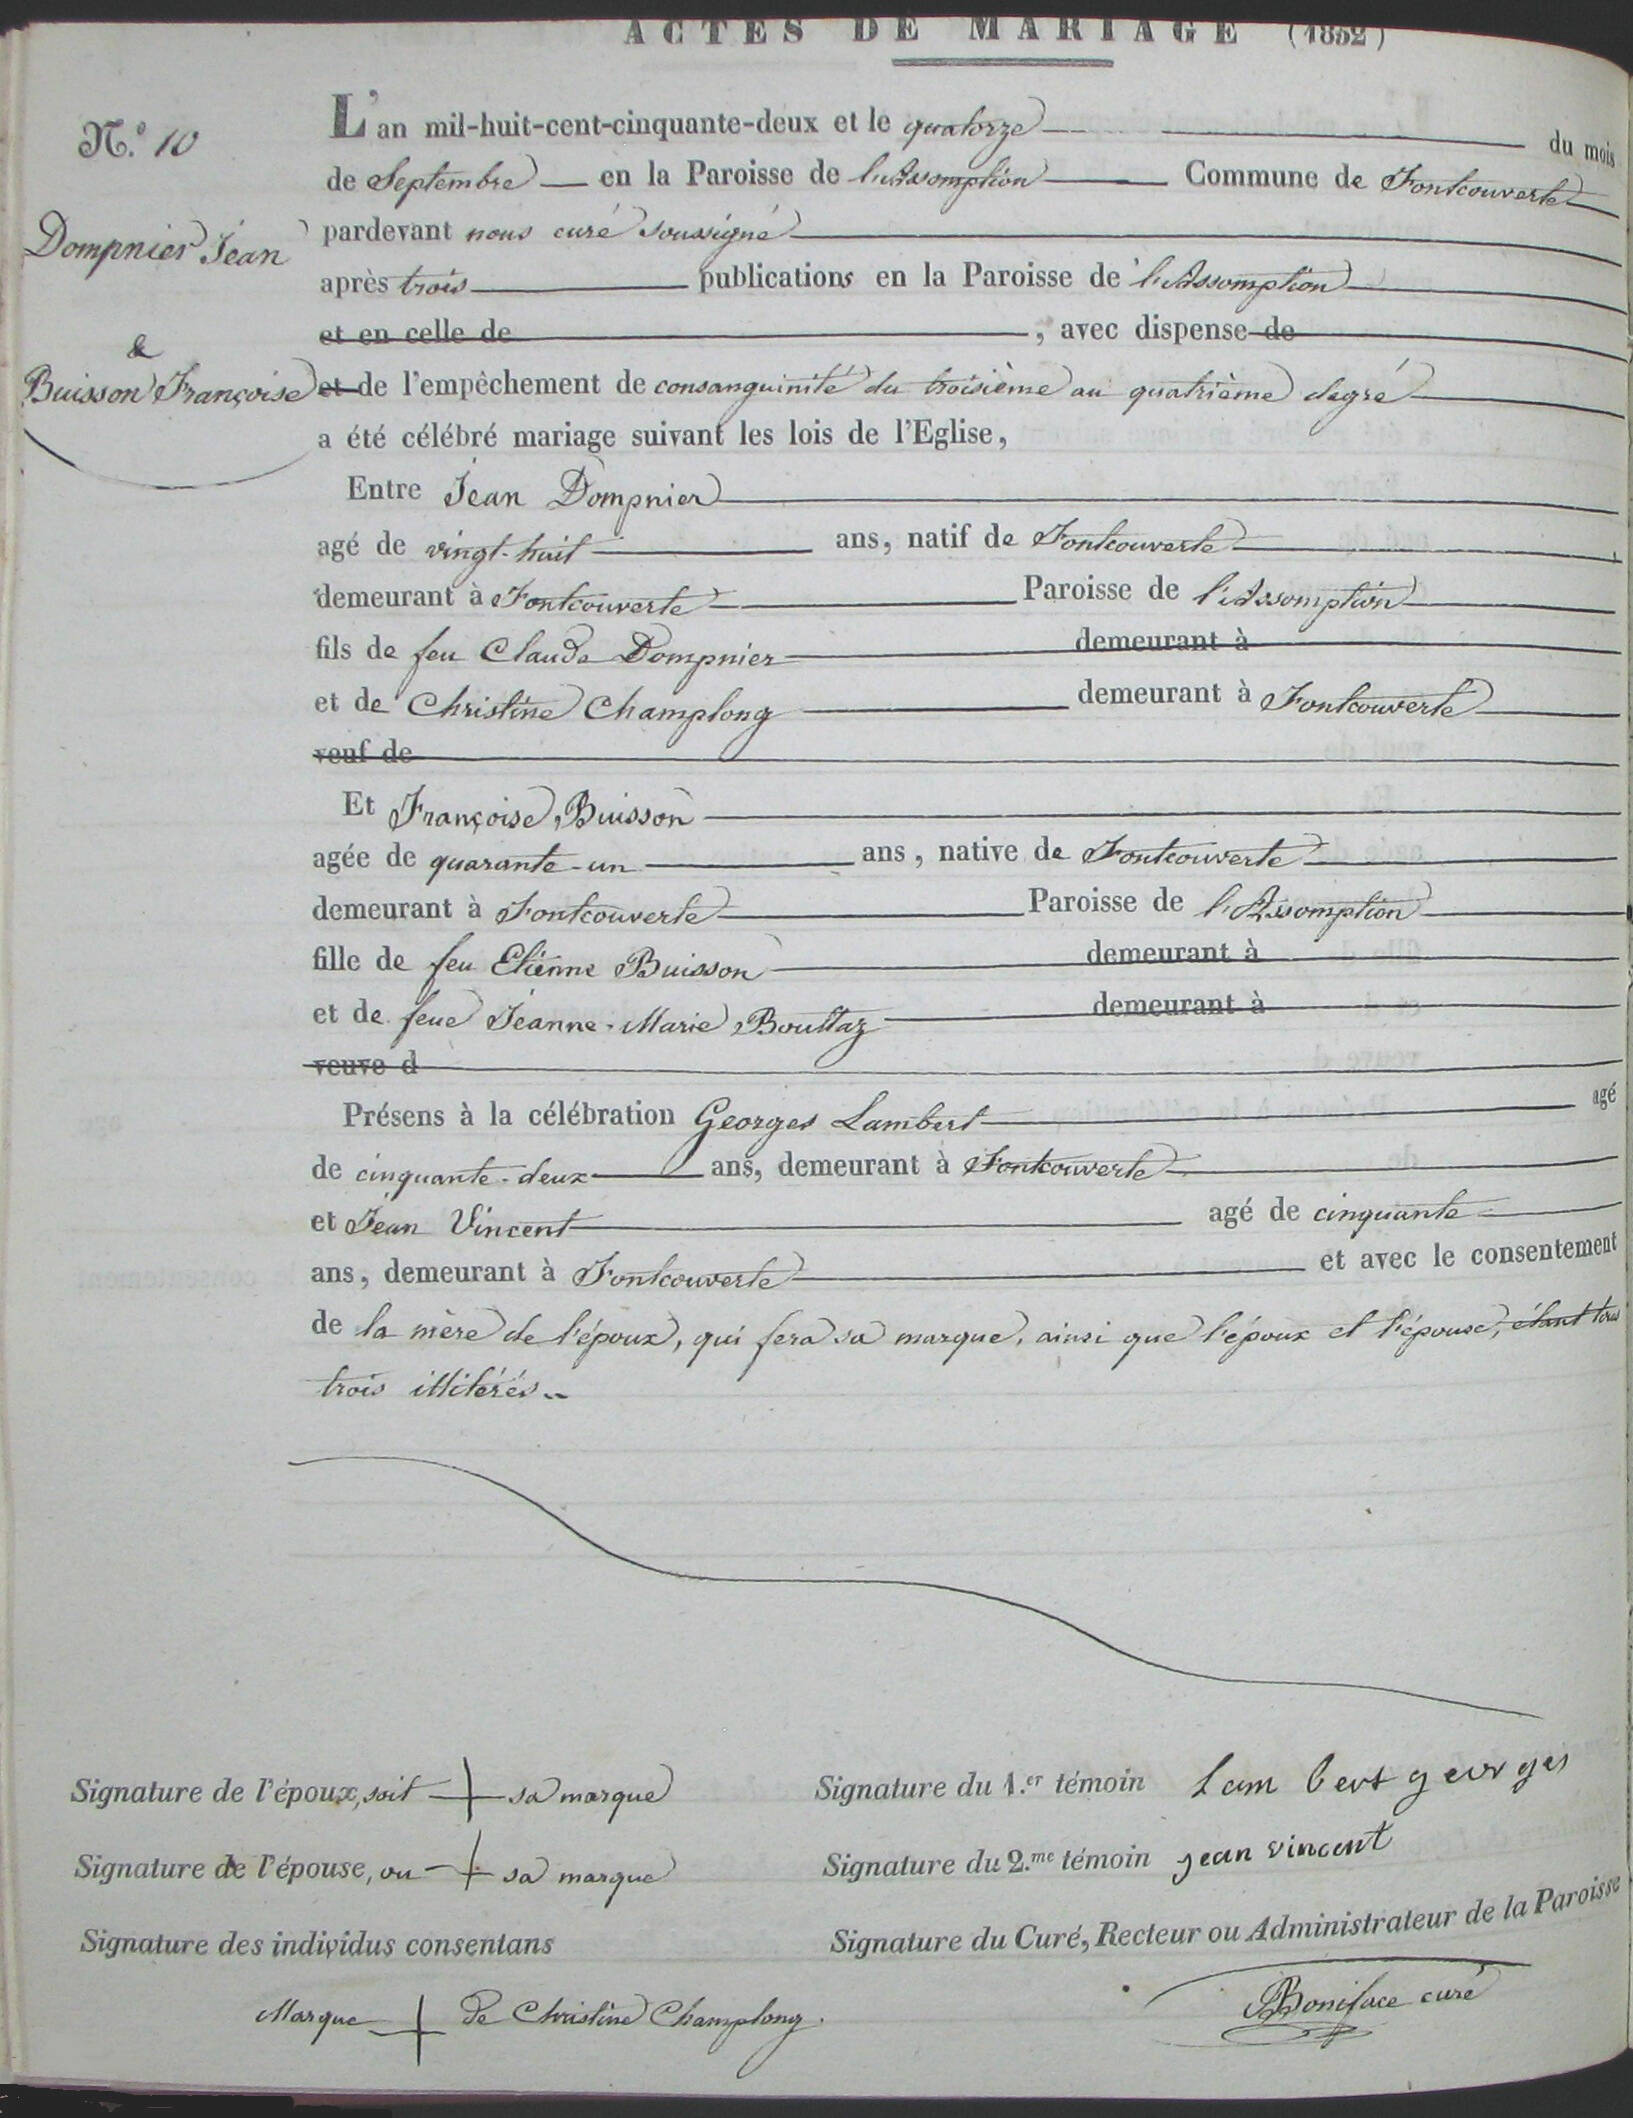 ACTES DE MARIAGE (1852)
N.º 10
L'an mil-huit-cent-cinquante-deux et le quatorze du mois
de Septembre en la Paroisse de l'Assomption Commune de Fontcouverte
Dompnier Jean
pardevant nous curé soussigné
après trois publications en la Paroisse de l'Assomption
et en celle de , avec dispense de
&
Buisson Françoise
et de l'empêchement de consanguinité du troisième au quatrième degré
a été célébré mariage suivant les lois de l'Eglise,
Entre Jean Dompnier
agé de vingt-huit ans, natif de Fontcouverte
demeurant à Fontcouverte Paroisse de l'Assomption
fils de feu Claude Dompnier demeurant à
et de Christine Champlong demeurant à Fontcouverte
veuf de
Et Françoise Buisson
agée de quarante-un ans, native de Fontcouverte
demeurant à Fontcouverte Paroisse de l'Assomption
fille de feu Etienne Buisson demeurant à
et de feue Jeanne-Marie Bouttaz demeurant à
veuve d
Présens à la célébration Georges Lambert agé
de cinquante-deux ans, demeurant à Fontcouverte
et Jean Vincent agé de cinquante
ans, demeurant à Fontcouverte et avec le consentement
de la mère de l'époux, qui fera sa marque, ainsi que l'époux et l'épouse, étant tous
trois illitérés..
Signature de l'époux, soit + sa marque
Signature du 1.er témoin Lambert georges
Signature de l'épouse, ou + sa marque
Signature du 2.me témoin jean vincent
Signature des individus consentans
Signature du Curé, Recteur ou Administrateur de la Paroisse
Marque + de Christine Champlong.
Boniface curé